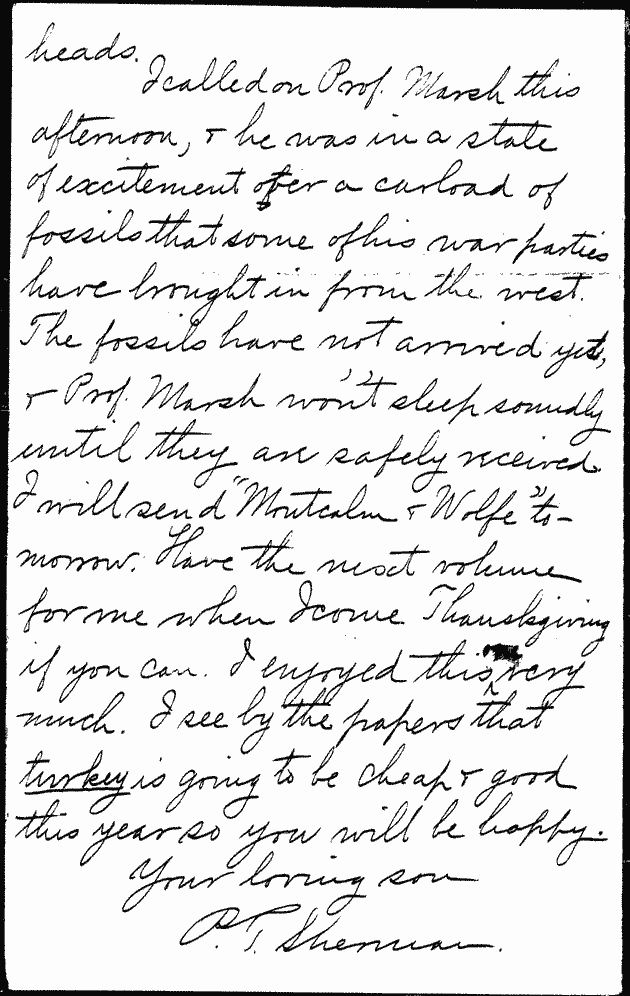 heads.
I called on Prof. Marsh this
afternoon, & he was in a state
of excitement over a carload of
fossils that some of his war parties
have brought in from the west.
The fossils have not arrived yet,
& Prof. Marsh won't sleep soundly
until they are safely received.
I will send "Montcalm & Wolfe" to-
morrow. Have the next volume
for me when I come Thanksgiving
if you can. I enjoyed this very
much. I see by the papers that
turkey is going to be cheap & good
this year so you will be happy.
Your loving son
P. T. Sherman.